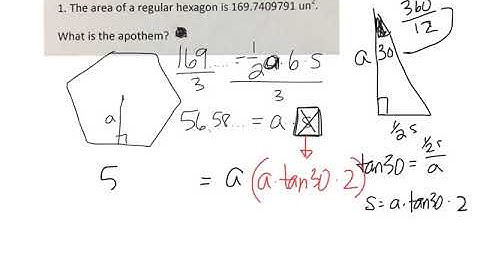 1. The area of a regular hexagon is 169.7409791 un².
What is the apothem?
169... = 1/2 a · 6 · s
3 3
56.58... = a · s
a
5 = a (a · tan30 · 2)
360/12
30
a
1/2 s
tan30 = 1/2s / a
s = a · tan30 · 2